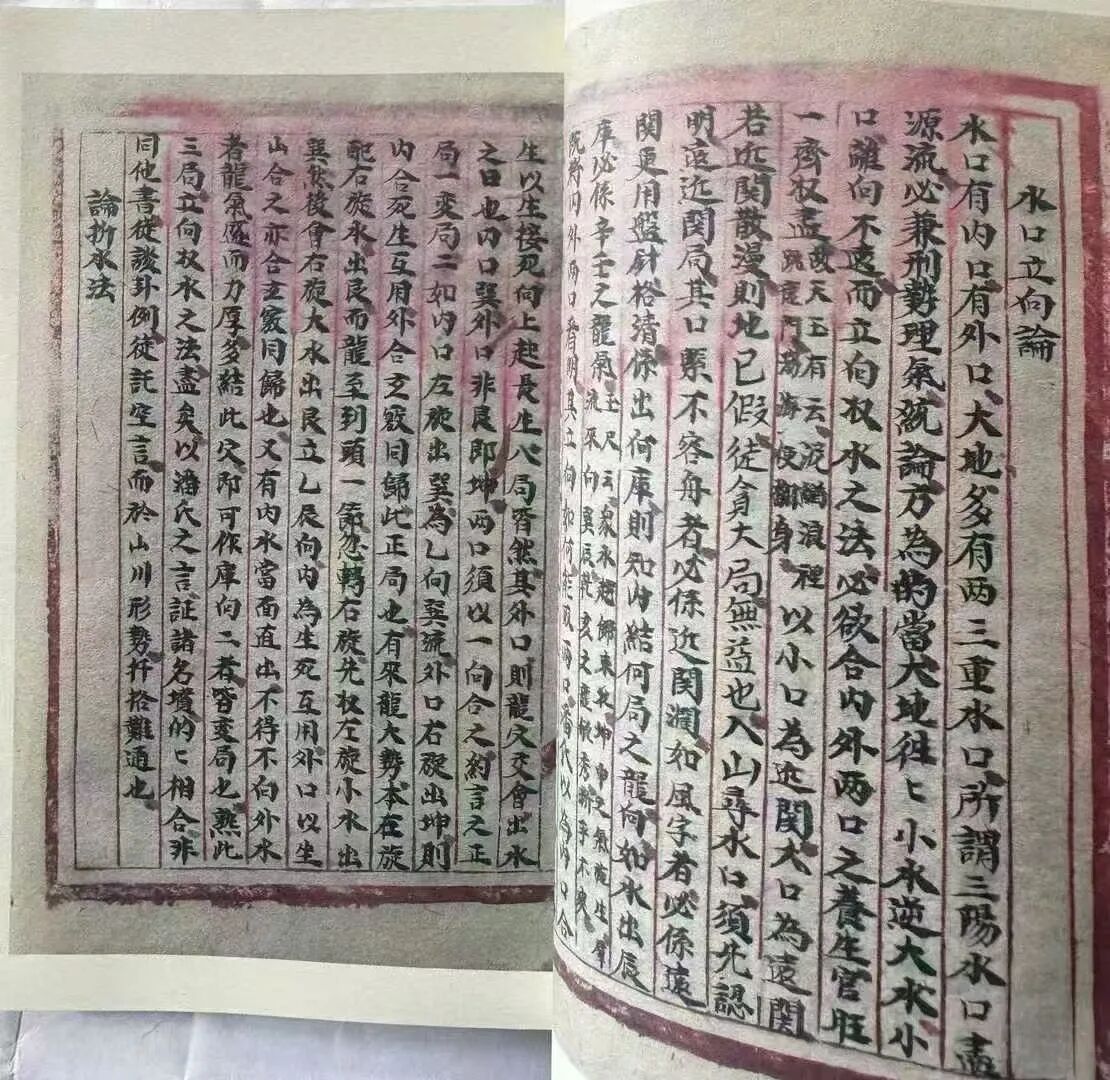 水口立向論
水口有内口有外口大地多有两三重水口所謂三陽水口盡
源流必兼刑勢理氣統論方為的當大地往々小水逆大水小
口離向不遠而立向收水之法必欲合内外两口之養生官旺
一齊权盡或天玉有云泥鰍浪裡跳龍門湯海便翻身以小口為近関大口為遠関
若近関散漫則地已假徒貪大局無益也入山尋水口須先認
明遠近関局其口緊不容舟者必係近関濶如風字者必係遠
関更用盤針格清係出何庫則知内結何局之龍向如水出辰
庫必係辛壬之龍氣
既将内外两口看明其立向如何能收两口
生以生接死向上起長生八局皆然其外口則龍又交會出水
之口也内口巽外口非艮即坤两口須以一向合之約言之正
局一变局二如内口左旋出巽為乙向巽流外口右旋出坤則
内合死生互用外合玄竅同歸此正局也有來龍大勢本在旋
配右旋水出艮而龍至到頭一節忽轉右旋先权左旋小水出
巽然後會右旋大水出艮立乙辰向内為生死互用外口以生
山合之亦合玄竅同歸也又有内水當面直出不得不向外水
者龍氣盛而力厚多結此穴即可作庫向二者皆变局也熟此
三局立向权水之法盡矣以潘氏之言証諸名墳的々相合非
同他書徒談卦例徒託空言而於山川形勢扞挌難通也
論折水法